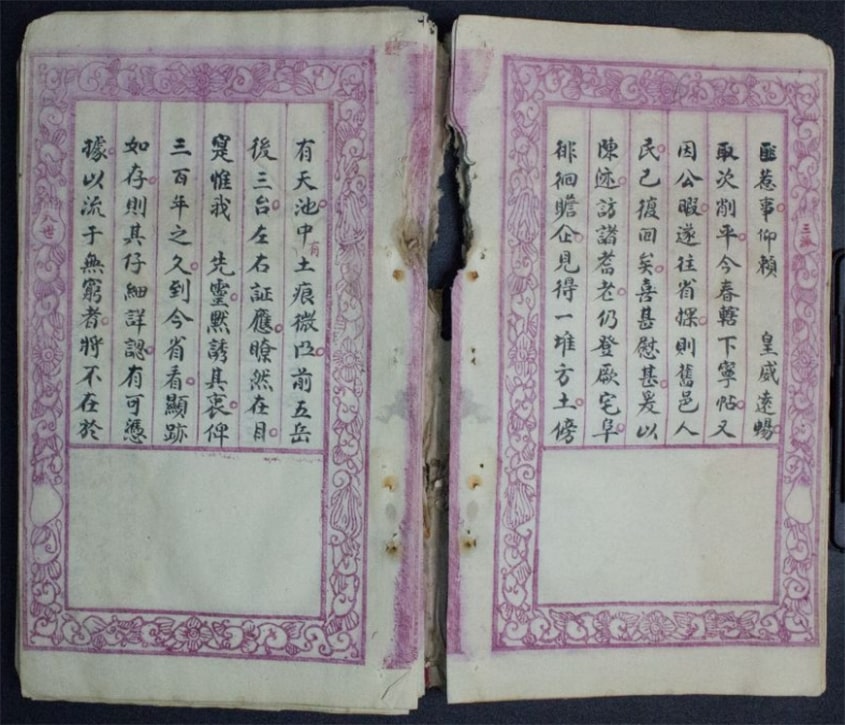 三派
匪惹事仰賴 皇威遠暢
取次削平今春轄下寧帖又
因公暇遂往省探則舊邑人
民已復回矣喜甚慰甚爰以
陳迹訪諸耆老仍登厥宅阜
徘徊瞻企見得一堆方土傍
有天池中有土痕微凸前五岳
後三台左右証應瞭然在目
寔惟我 先靈默誘其衷俾
三百年之久到今省看顯跡
如存則其仔細詳認有可憑
據以流于無窮者將不在於
八世